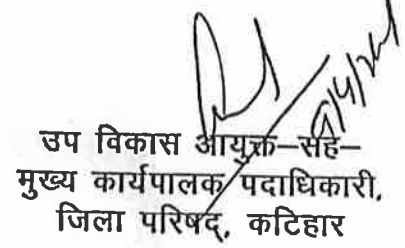 उप विकास आयुक्त–सह–
मुख्य कार्यपालक पदाधिकारी,
जिला परिषद्, कटिहार